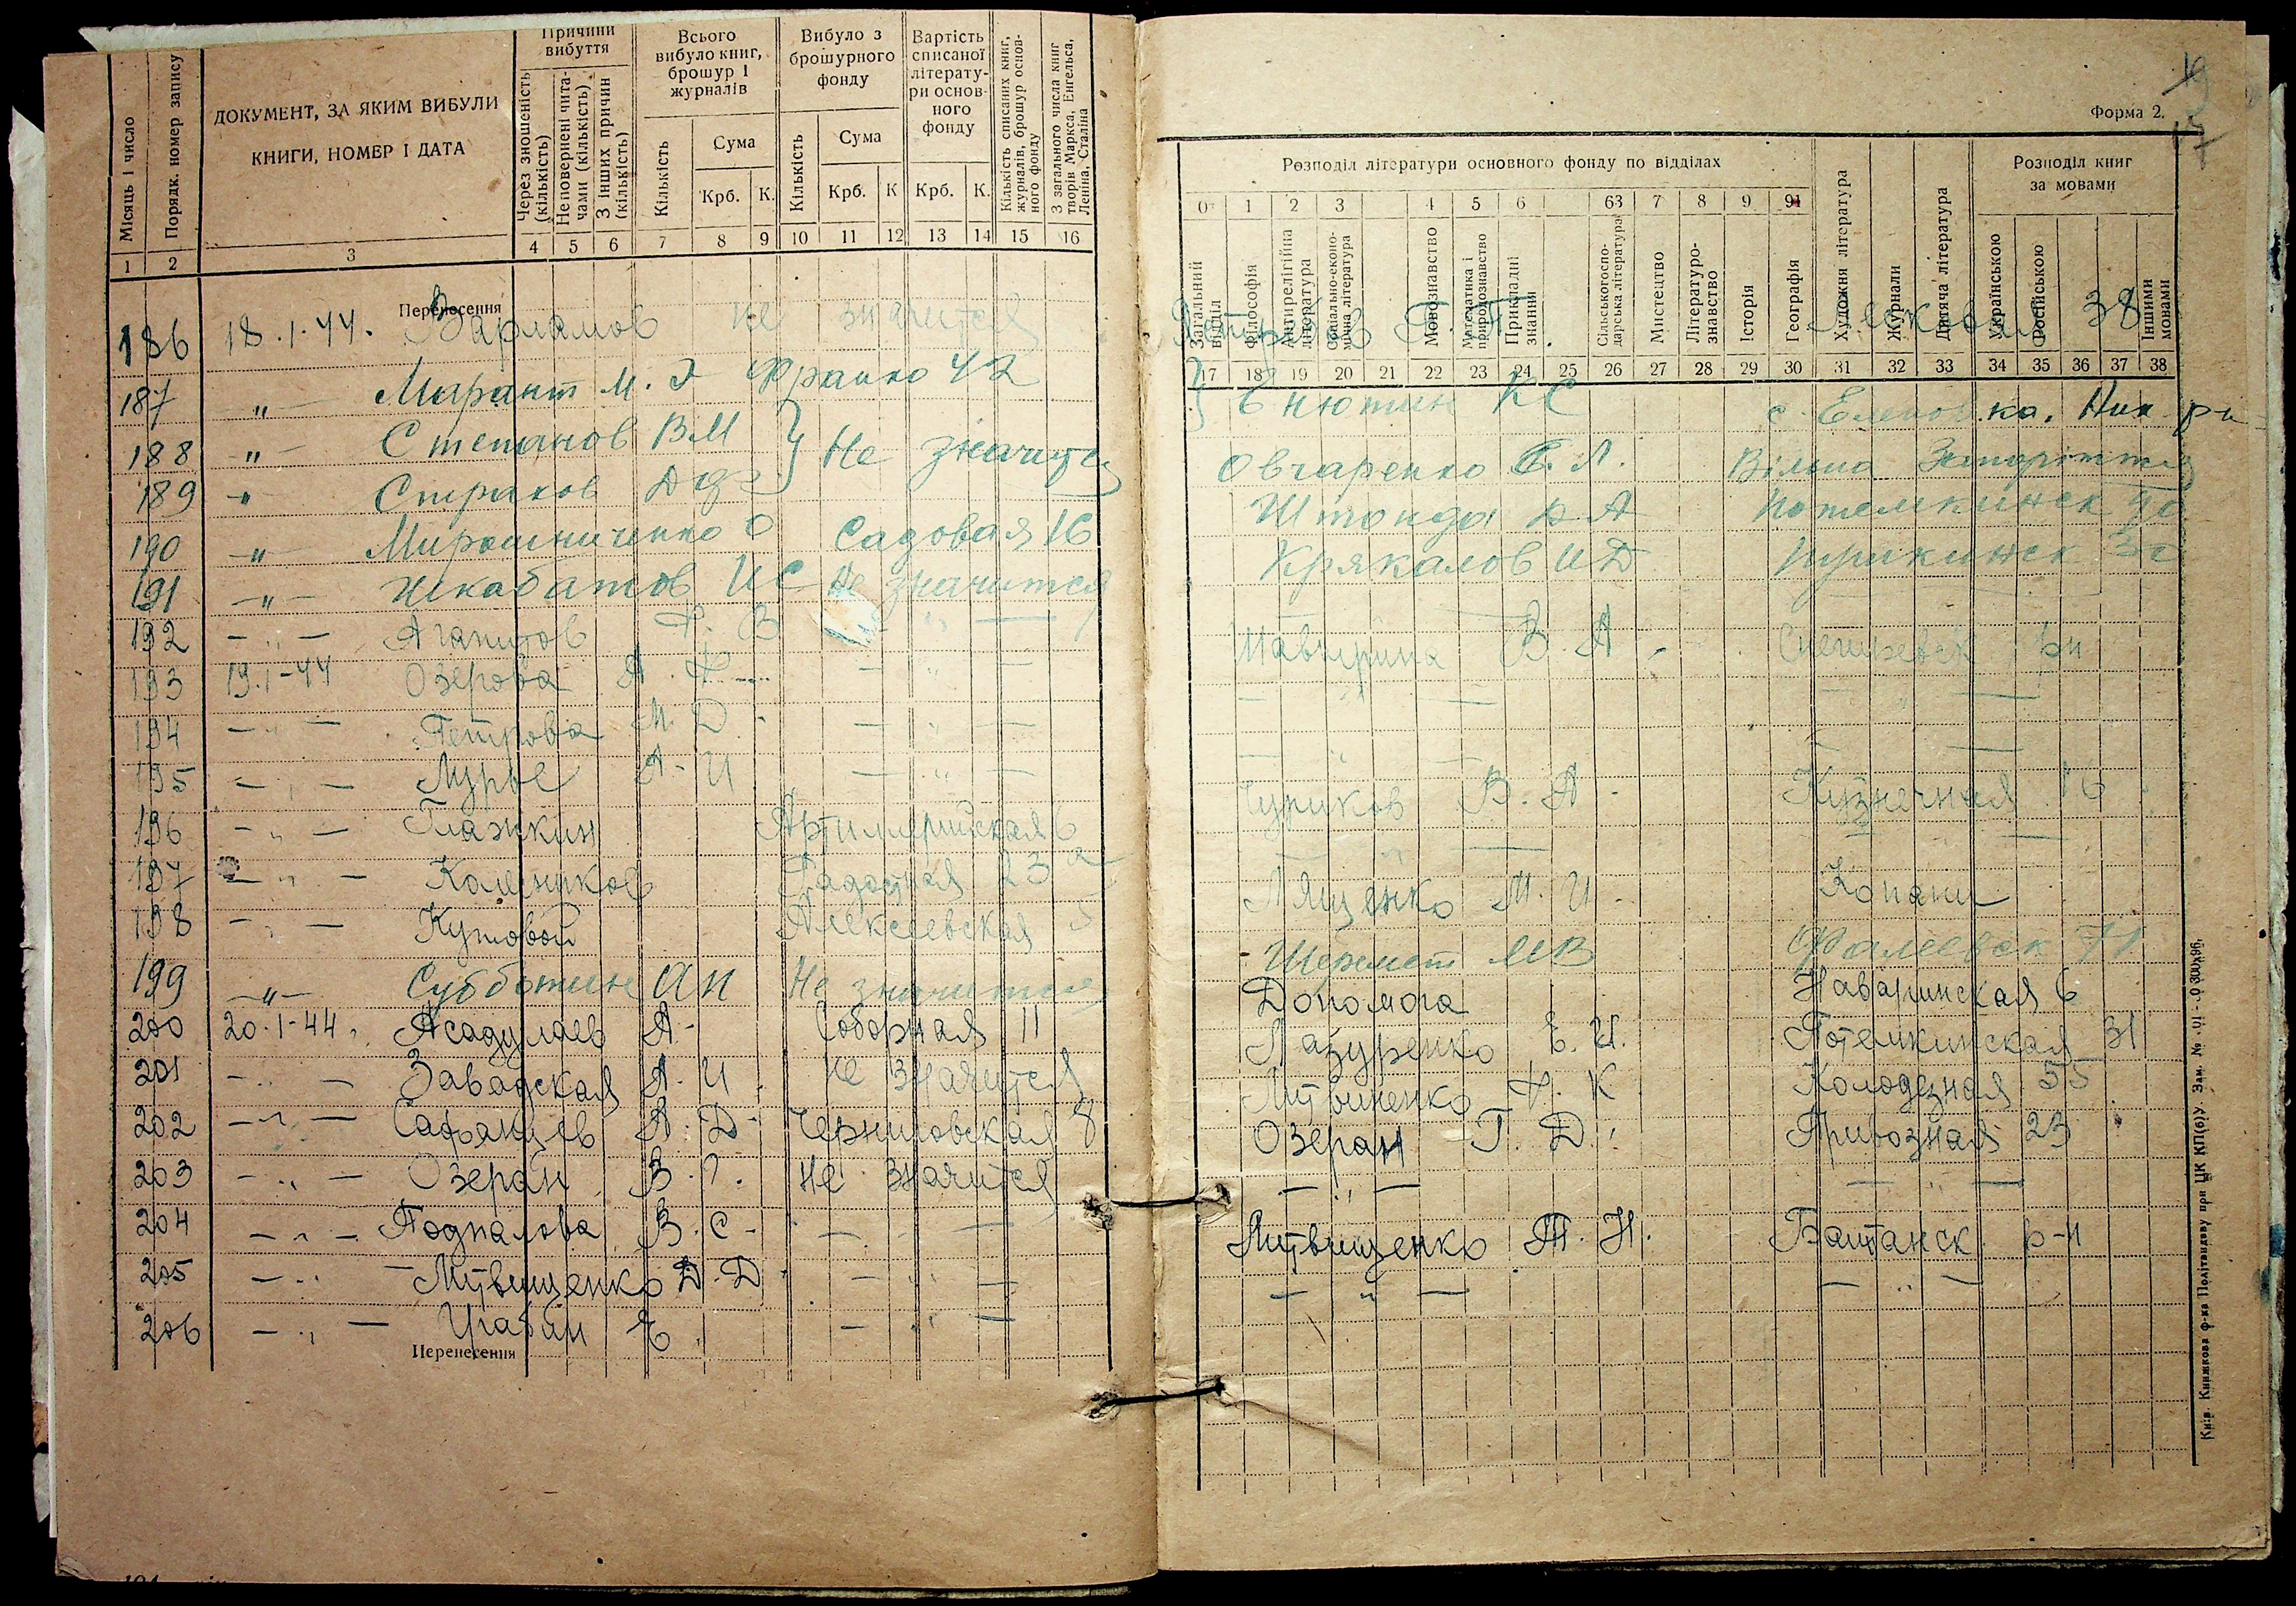 Причини вибуття
Всього вибуло книг, брошур і журналів
Вибуло з брошурного фонду
Вартість списаної літератури основного фонду
Кількість списаних книг, журналів, брошур основного фонду
З загального числа книг творів Маркса, Енгельса, Леніна, Сталіна
Місяць і число
Порядк. номер запису
ДОКУМЕНТ, ЗА ЯКИМ ВИБУЛИ
КНИГИ, НОМЕР І ДАТА
Через зношеність (кількість)
Неповернені читачами (кількість)
З інших причин (кількість)
Кількість
Сума
Крб. К.
Кількість
Сума
Крб. К
Крб. К.
1 2 3 4 5 6 7 8 9 10 11 12 13 14 15 16
Перенесення
186 18.1.44. Варламов не значится
187 〃 Марант М. Э Франко 42
188 〃 Степанов ВМ } Не значится
189 〃 Страхов
190 〃 Мирошниченко О Садовая 16
191 〃 ИС Не значится
192 — 〃 — Агапитов Ф. В — 〃 —
193 19.1-44 Озерова А. — 〃 —
194 — 〃 — Петрова М. Д. — 〃 —
195 — 〃 — Лурье А. И — 〃 —
196 — 〃 — Глажкин Артиллерийская 6
197 — 〃 — Колесников 23 а
198 — 〃 — Кутовой Алексеевская 5
199 — 〃 — Субботин АИ Не значится
200 20.1-44. Асадулаев А. Соборная 11
201 — 〃 — Завадская А. И. не значится
202 — 〃 — Сафанцев А. Д. Черниговская 8
203 — 〃 — Озеран В. Г. не значится
204 — 〃 — Подпалова В. С. — 〃 —
205 — 〃 — Литвищенко Д. Д. — 〃 —
206 — 〃 — Е. — 〃 —
Перенесення
19
17
Форма 2.
Розподіл літератури основного фонду по відділах
Розподіл книг за мовами
0 1 2 3 4 5 6 63 7 8 9 91
Загальний відділ
Філософія
Антирелігійна література
Соціально-економічна література
Мовознавство
Математика і природознавство
Прикладні знання
Сільськогосподарська література
Мистецтво
Літературознавство
Історія
Географія
Художня література
Журнали
Дитяча література
Українською
Російською
Іншими мовами
17 18 19 20 21 22 23 24 25 26 27 28 29 30 31 32 33 34 35 36 37 38
Г. П. 38
КС с. Еленовка.
Овчаренко Е. Л. Вільна Запоріття
Штонда А Потемкинск 90
Крякалов ИД Пушкинск
В. А. Снегиревск рн
— 〃 — — 〃 —
— 〃 — — 〃 —
Чуриков В. А. Кузнечная 16
— 〃 — — 〃 —
Лященко М. И. Копани
Шеремет МВ Фалеевск 71
Допомога Наваринская 6
Лазуренко Е. И. Потемкинская 31
Литвиненко Ф. К. Колодезная 55
Озеран Г. Д. Привозная 23
— 〃 — — 〃 —
Литвищенко Т. Н. Баштанск р-н
— 〃 — — 〃 —
Київ. Книжкова ф-ка Політвидаву при ЦК КП(б)У. Зам. №